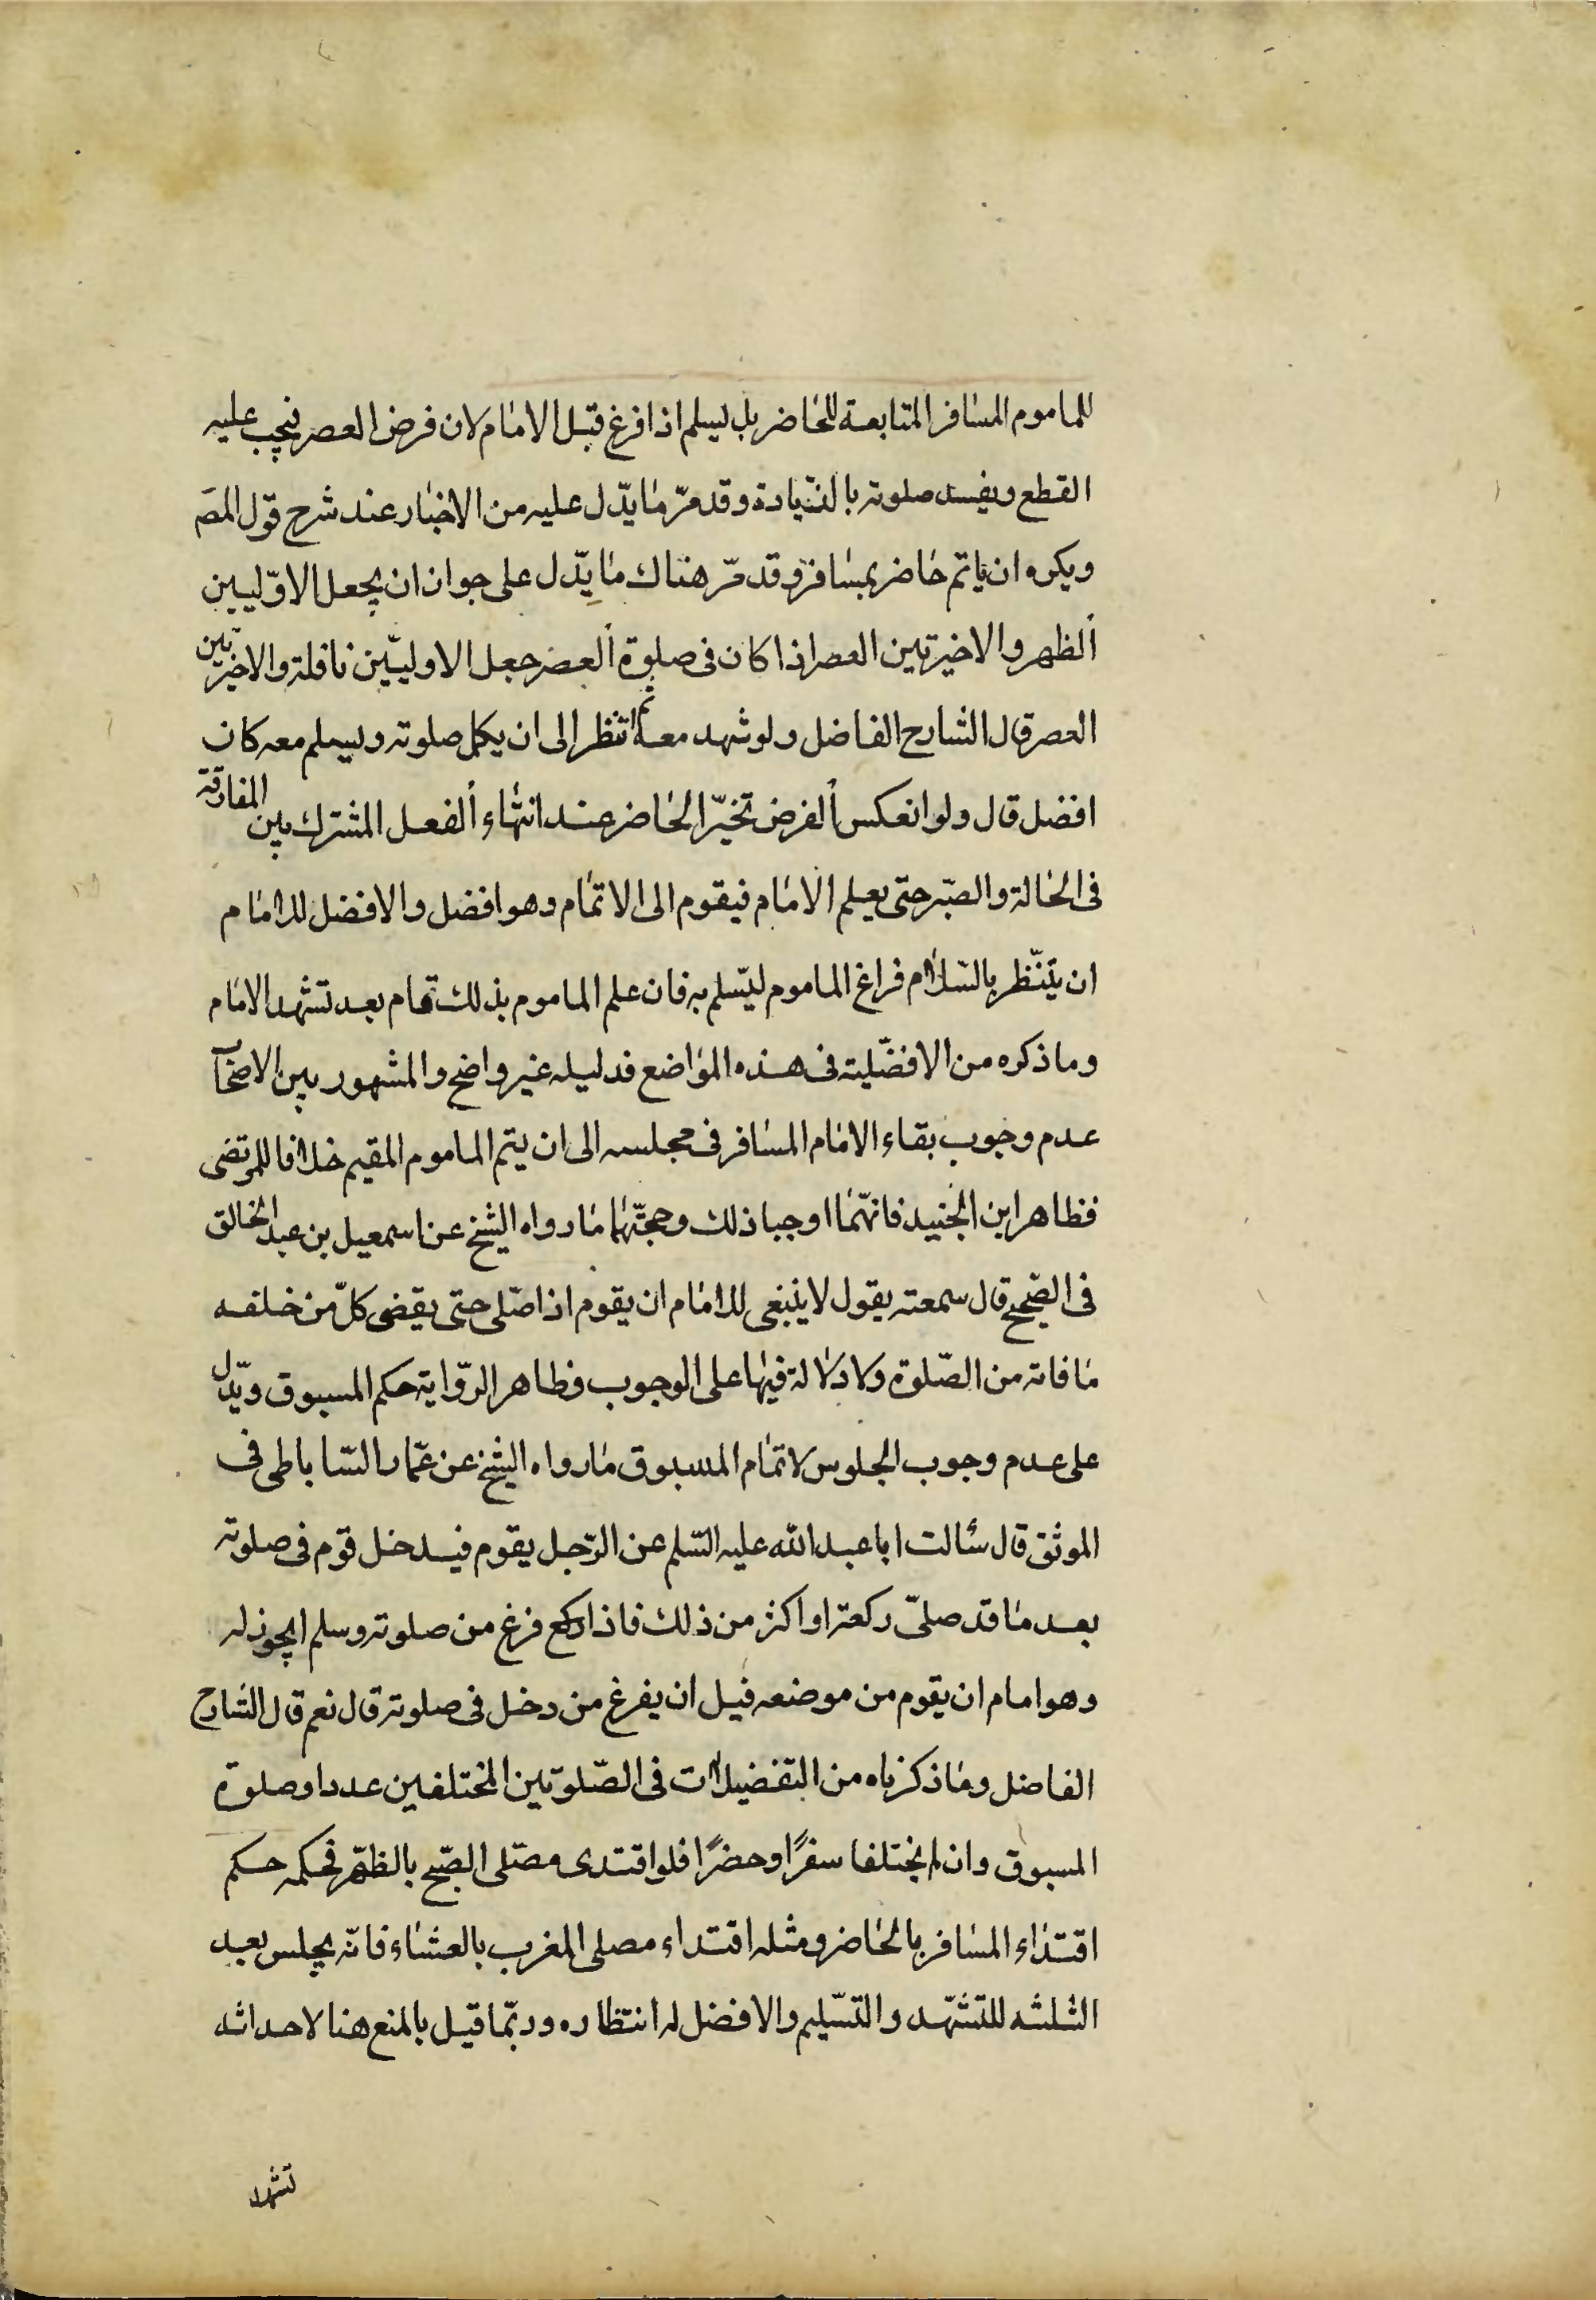 للماموم المسافر المتابعة للحاضر بل يسلم اذا فرغ قبل الامام لان فرض العصر فيجب عليه
القطع ويفسد صلوته بالزيادة وقد مرّ ما يدّل عليه من الاخبار عند شرح قول المصَ
ويكره ان ياتم حاضر بمسافر وقد مرّ هناك ما يدّل على جواز ان يجعل الاوّليين
الظهر والاخيرتين العصر اذا كان فى صلوة العصر جعل الاوليّين نافلة والاخيرتين
العصر قال الشارح الفاضل ولو شهد معه ثم انتظر الى ان يكمل صلوته ويسلم معه كان
افضل قال ولو انعكس الفرض تخيّر الحاضر عند انتهاء الفعل المشترك بين المفارقة
فى الحالة والصّبر حتى يعلم الامام فيقوم الى الاتمام وهو افضل والافضل للامام
ان ينتّظر بالسّلام فراغ الماموم ليسّلم به فان علم الماموم بذلك قام بعد تشهد الامام
وما ذكره من الافضّليته فى هذه المواضع فدليله غير واضح والمشهور بين الاصحاب
عدم وجوب بقاء الامام المسافر فى مجلسه الى ان يتم الماموم المقيم خلافا للمرتضى
فظاهر ابن الجنيد فانهّما اوجبا ذلك وحجّتهما ما رواه الشيخ عن اسمعيل بن عبد الخالق
فى الصّحيح قال سمعته يقول لا ينبغى للامام ان يقوم اذا صّلى حتى يقضى كلّ من خلفه
ما فاته من الصّلوة ولا دلالة فيها على الوجوب وظاهر الرّواية حكم المسبوق ويدّل
على عدم وجوب الجلوس لاتمام المسبوق ما رواه الشيخ عن عمّار السّاباطى فى
الموثق قال سئالت ابا عبد الله عليه السّلم عن الرّجل يقوم فيدخل قوم فى صلوته
بعد ما قد صلىّ ركعة او اكثر من ذلك فاذا ركع فرغ من صلوته وسلم ايجوز له
وهو امام ان يقوم من موضعه قبل ان يفرغ من دخل فى صلوته قال نعم قال الشارح
الفاضل وما ذكرناه من التفضيلات فى الصّلوتين المختلفين عددا وصلوة
المسبوق وان لم يختلفا سفرًا وحضرًا فلو اقتدى مصّلى الصّبح بالظّهر فحكمه حكم
اقتداء المسافر بالحاضر ومثله اقتداء مصلى المغرب بالعشاء فانّه يجلس بعد
الثلثه للتشهّد والتسّليم والافضل له انتظاره وربّما قيل بالمنع هنا لاحداثه
تشهد